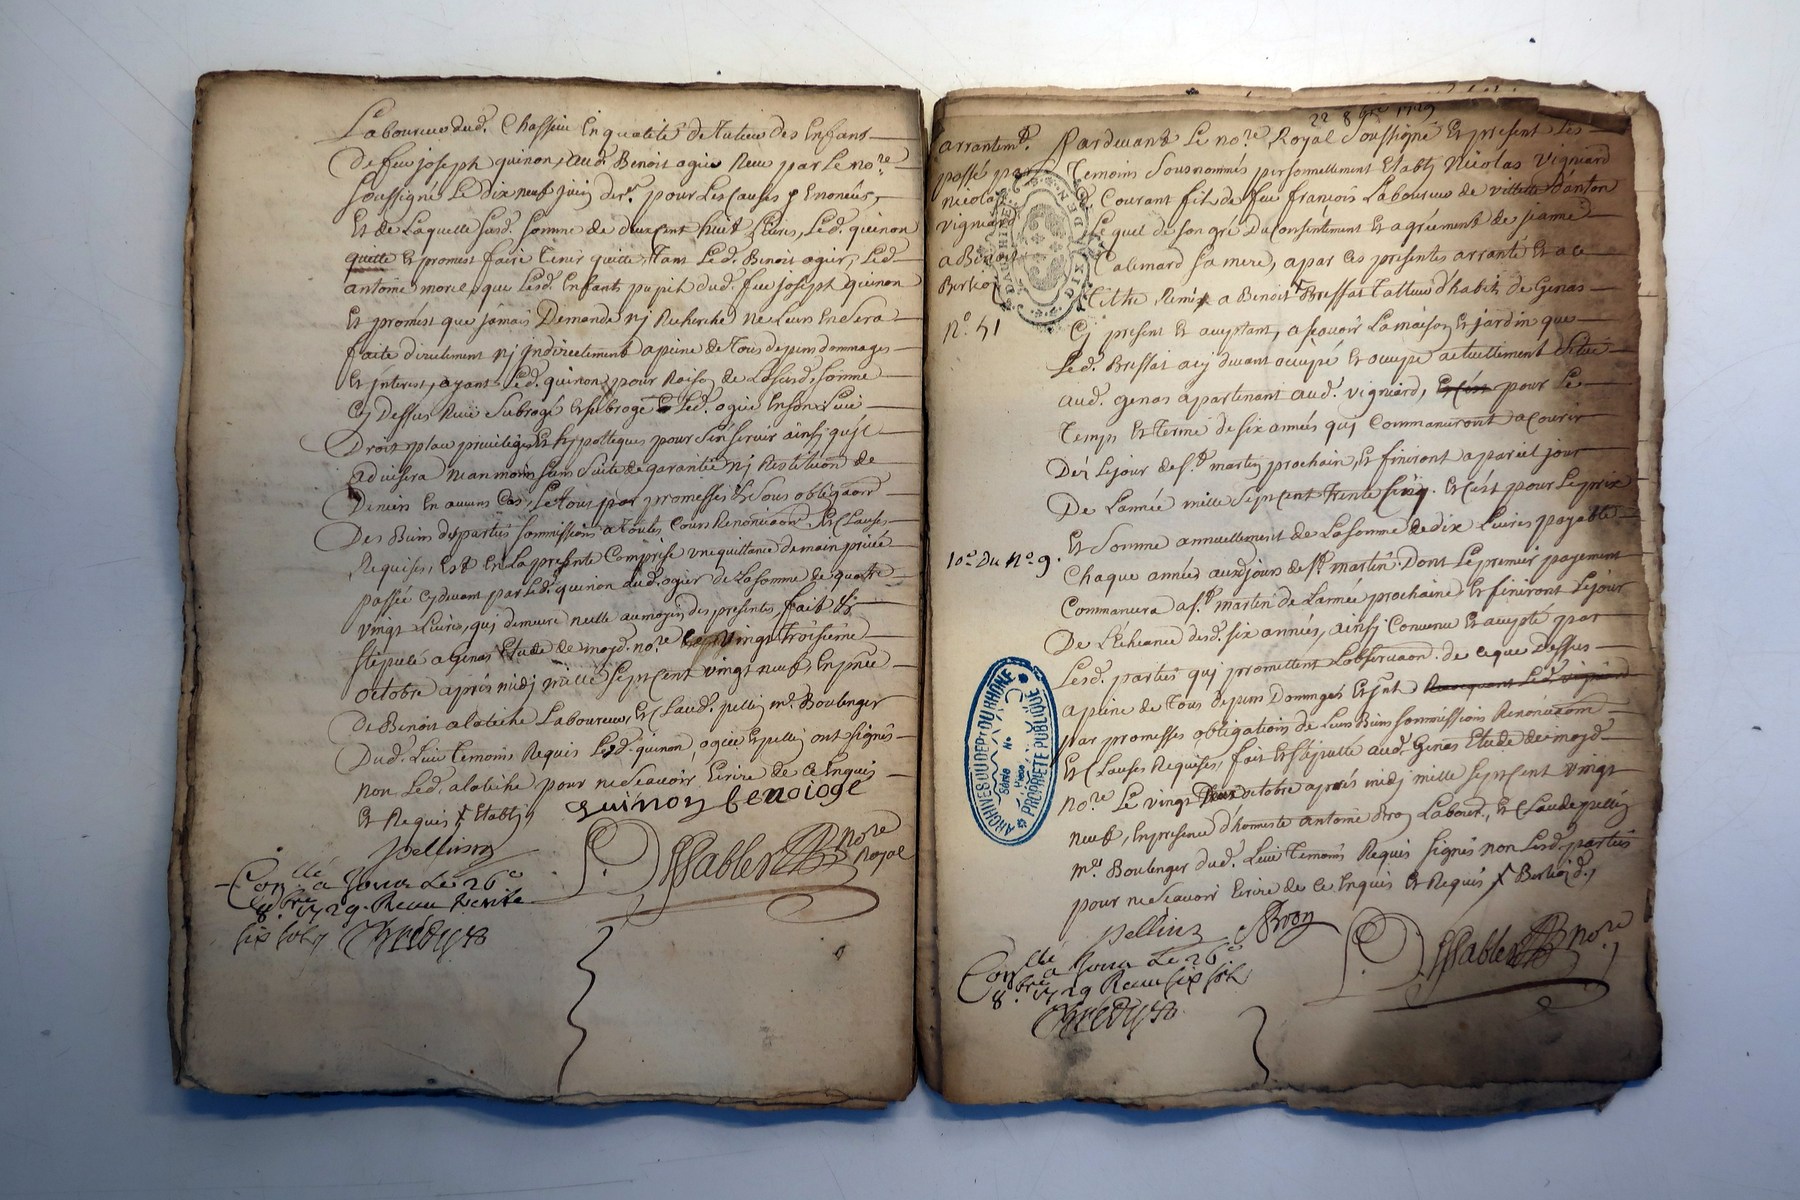 Laboureur dud. Chassieu En qualité de Tuteur des Enfans
De feu joseph quinon, aud. Benoit ogier Reçu par Le no.re
Soussigné Le Dix neuf juin der.r pour Les Causes y Enonéés,
Et de Laquelle susd. somme de deux Cent huit Livres, Led. quinon
quitte Et promest faire Tenir quitte, Tant Led. Benoit ogier, Led.
antoine morel, que Lesd. Enfants pupil dud. feu joseph quinon
Et promest que jamais Demande nj Recherche ne Leur En sera
faite directement nj jndirectement a peine de Tous depens dommages
Et jnterest, ayant Led. quinon, pour Raison de La susd. somme
Cy Dessus Reçue Subrogé Et subroge Led. ogier En son Lieu
Droit place privileges Et hypotteques pour s'en servir ainsj qu'jl
advisera neanmoins sans suite de garantie nj Restitution de
Deniers En aucuns Cas, Le Tous par promesses Et sous obligaon
Des Biens des parties sommissions a Toutes Cours Renonciaon Et Clauses
Requises, Est En La presente Comprise une quittance de main privée
passée Cy devant par Led. quinon aud. ogier de La somme de quatre
vingt Livres, quj demeure nulle au moyen des presentes, fait &
stipulé a Genas Etude de mojd. no.re Le vingt Troisieme
octobre aprés midj mille sept cent vingt neuf, En pnce
De Benoit alateche Laboureur, Et Claud. pellin m.e Boulenger
Dud. Lieu Temoins Requis Led. quinon, ogier Et pellin ont signés
non Led. alateche pour ne sçavoir Ecrire de Ce Enquis
Et Requis Etablj
quinon benoi oge
pellin
Dessables no.re
Royal
Con.llé a Jona Le 26.e
8.bre 1729. Reçu trente
six sols
22 8bre 1729
arrantem.t
passé par
nicolas
vigniard
a Benoit
N.o 51
10.e Du N.o 9.
Pardevant Le no.re Royal Soussigné Et present Les
Temoins Sousnommés personnellement Etablj Nicolas vigniard
Courant fils de feu françois Laboureur de villette D'anton
Lequel de son gré Du Consentement Et agréement de jeanne
Calemard sa mere, a par Ces presentes arranté Et a
Tiltre Remis a Benoit Bressat Tailleur d'habits de Genas
Cy present Et acceptant, a sçavoir La maison Et jardin que
Led. Bressat a cy devant occupé Et occupe actuellement situé
aud. Genas apartenant aud. vigniard, Et Cest pour Le
Temps Et Terme de six années quj Commanceront a Courir
Des Le jour de s.t martin prochain, Et finiront a pareil jour
De L'année mille sept cent Trente Cinq. Et C'est pour Le prix
Et somme annuellement de La somme de dix Livres payable
Chaque années aux jours de s.t martin. Dont Le premier payement
Commancera a s.t martin de L'année prochaine Et finiront Le jour
De L'Echeance desd. six années, ainsj Convenu Et accepté par
Lesd. parties quj promettent L'observaon. de ce que Dessus
a peine de Tous depens Dommages Et jnt
par promesses obligations de Leurs Biens sommissions Renonciaons
Et Clauses Requises, fait Et stipulé aud. Genas Etude de mojd.
no.re Le vingt Deux octobre aprés midj mille sept cent vingt
neuf, En presence d'honneste antoine Broy Labour.r, Et Claude pellin
m.e Boulenger dud. Lieu Temoins Requis signés non Lesd. parties
pour ne sçavoir Ecrire de Ce Enquis Et Requis
pellin Broy
Dessables no.re
Con.llé a Jona Le 26.e
8.bre 1729 Reçu six sols
DAUPHINE
ARCHIVES DU DEP.t DU RHÔNE
Série No
PROPRIÉTÉ PUBLIQUE